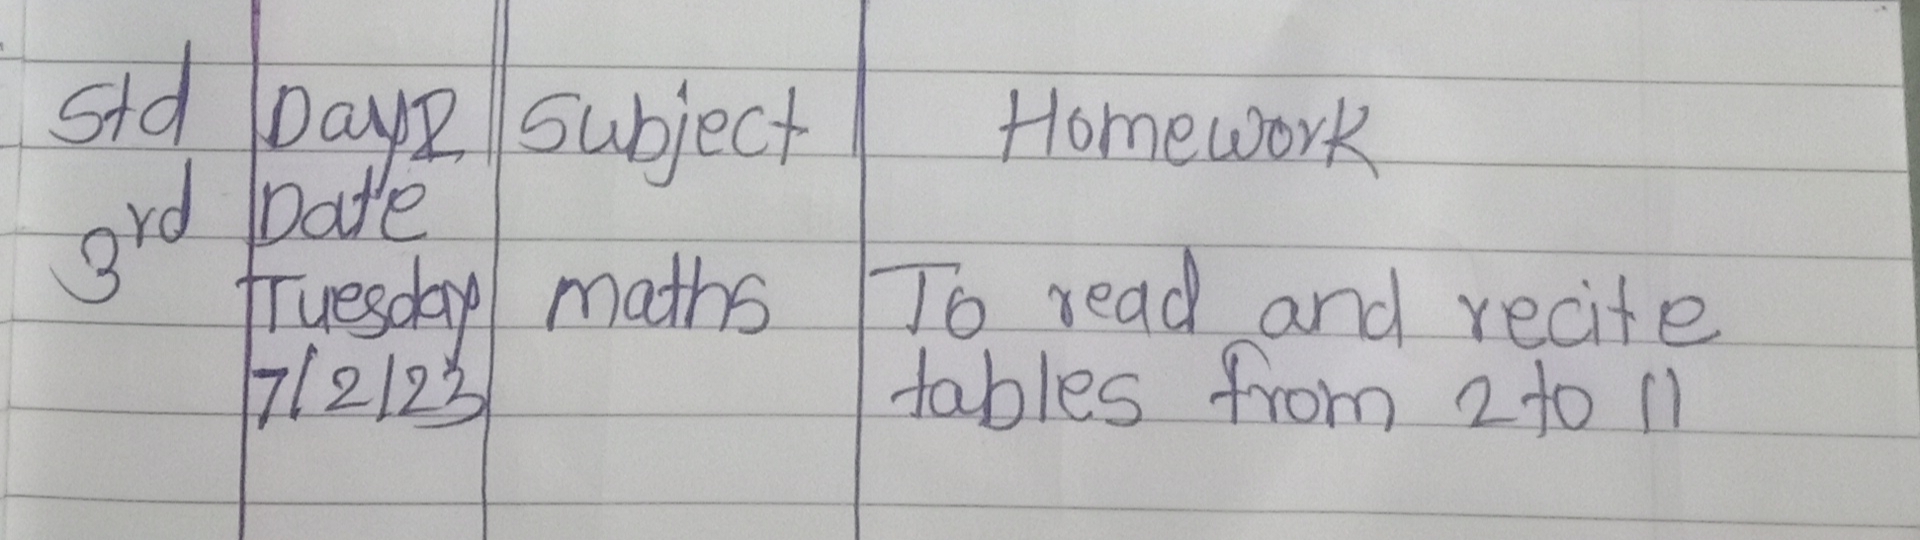 Std Day & Subject Homework
Date
3rd Tuesday maths To read and recite
7/2/23 tables from 2 to 11